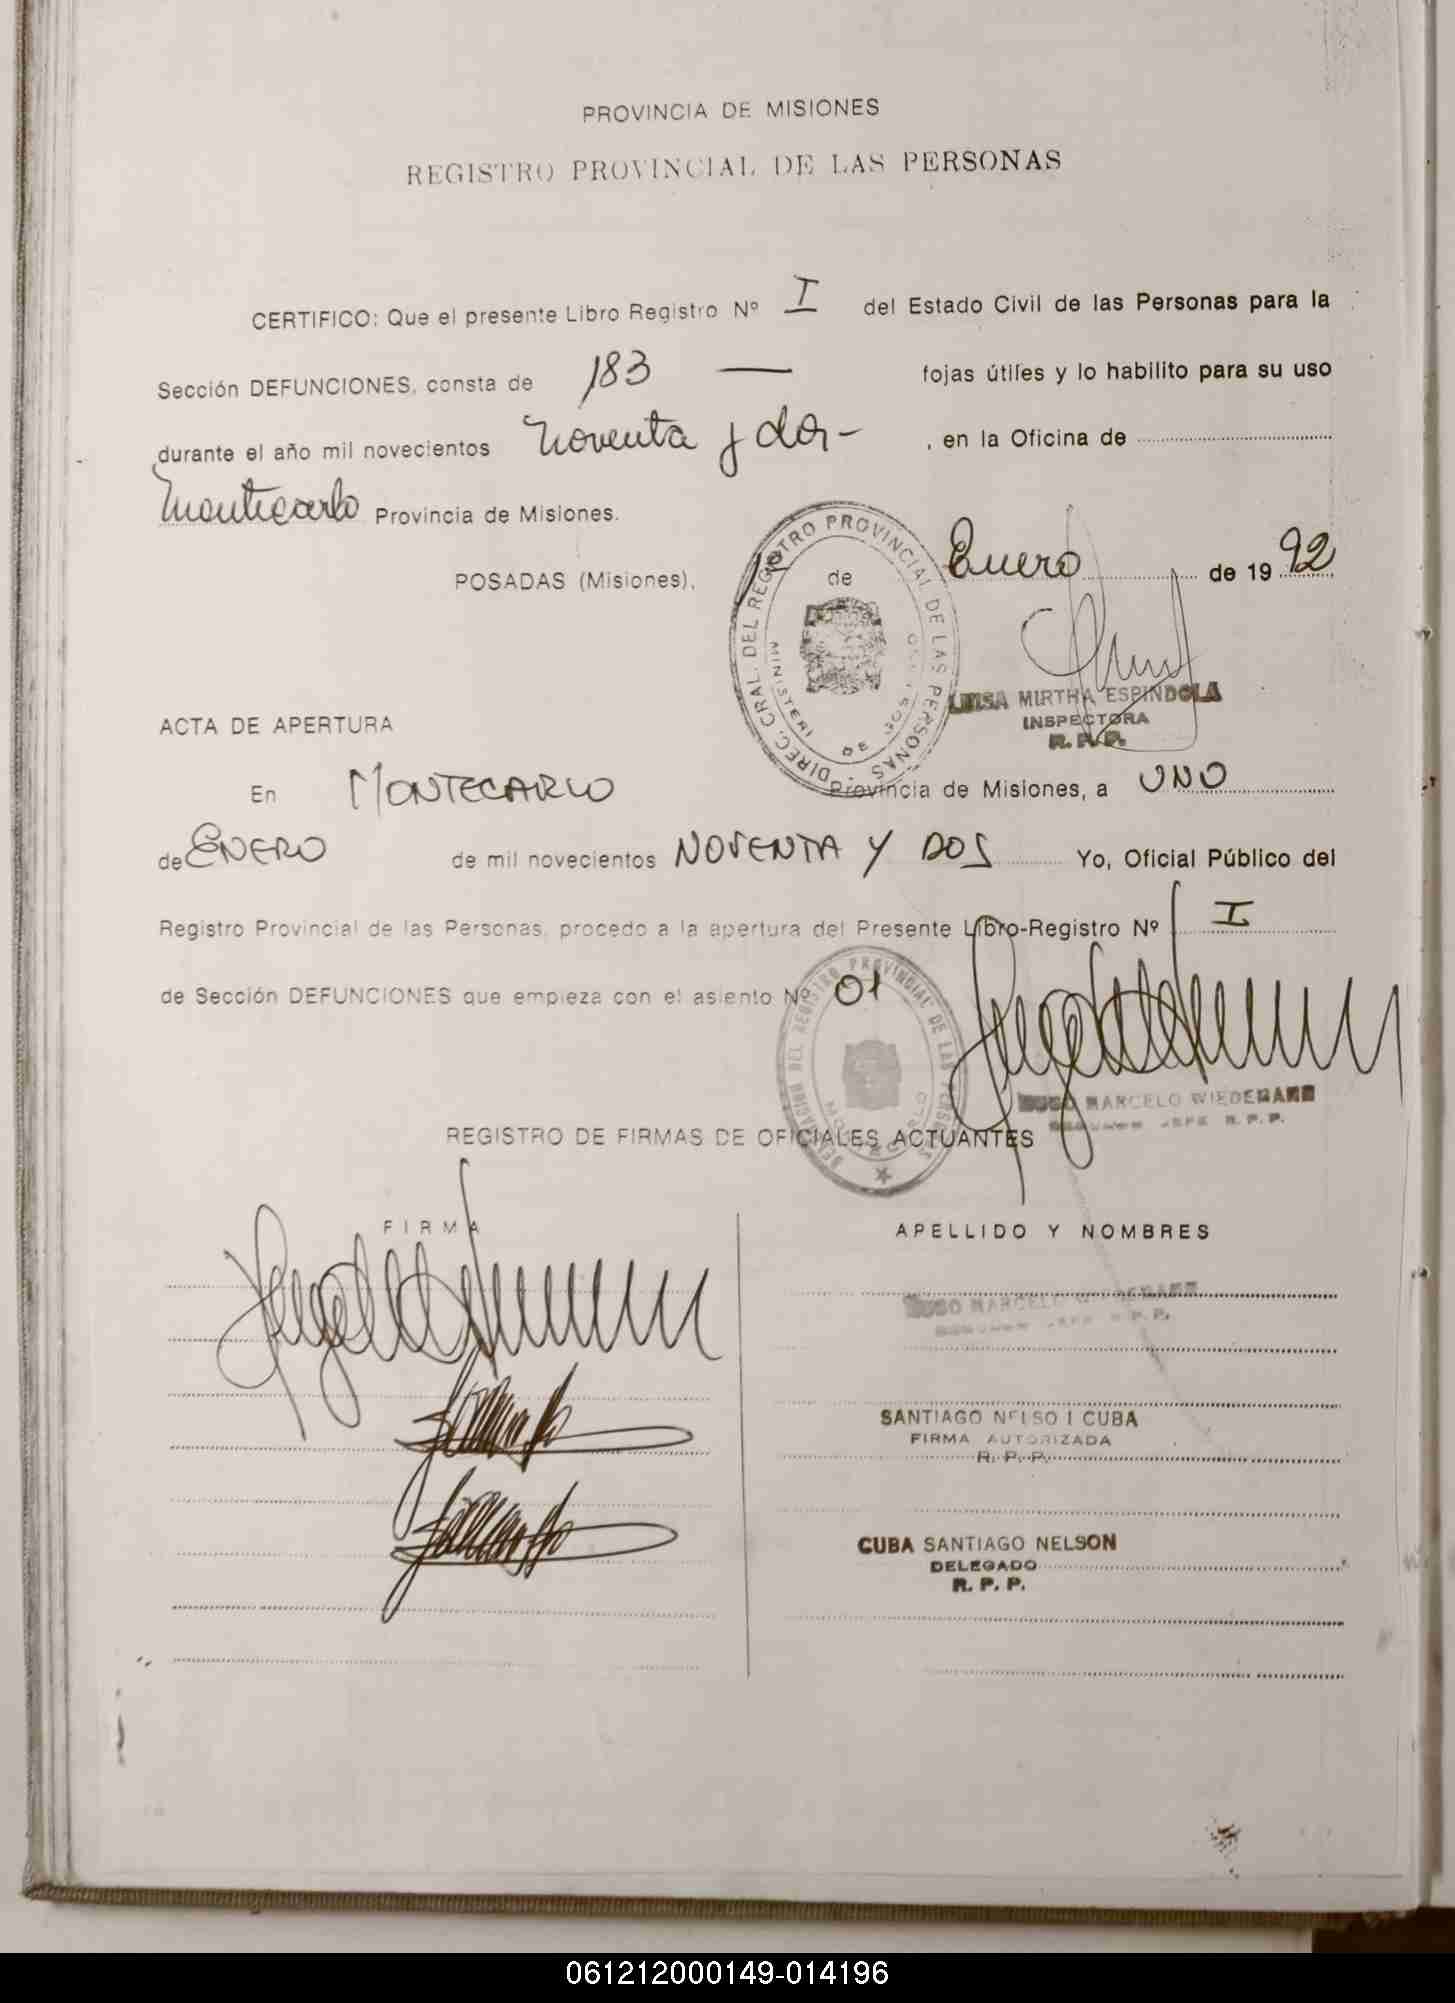 PROVINCIA DE MISIONES
REGISTRO PROVINCIAL DE LAS PERSONAS
CERTIFICO: Que el presente Libro Registro Nº I del Estado Civil de las Personas para la
Sección DEFUNCIONES, consta de 183 — fojas útiles y lo habilito para su uso
durante el año mil novecientos noventa y dos - , en la Oficina de
Montecarlo Provincia de Misiones.
POSADAS (Misiones), de Enero de 19 92
DIREC. GRAL. DEL REGISTRO PROVINCIAL DE LAS PERSONAS
LUISA MIRTHA ESPINDOLA
INSPECTORA
R. P. P.
ACTA DE APERTURA
En MONTECARLO Provincia de Misiones, a UNO
de ENERO de mil novecientos NOVENTA Y DOS Yo, Oficial Público del
Registro Provincial de las Personas, procedo a la apertura del Presente Libro-Registro Nº I
de Sección DEFUNCIONES que empieza con el asiento Nº 01
DELEGACION DEL REGISTRO PROVINCIAL DE LAS PERSONAS
MONTECARLO
HUGO MARCELO WIEDEMANN
JEFE R. P. P.
REGISTRO DE FIRMAS DE OFICIALES ACTUANTES
FIRMA APELLIDO Y NOMBRES
HUGO MARCELO WIEDEMANN
JEFE R. P. P.
SANTIAGO NELSON CUBA
FIRMA AUTORIZADA
R. P. P.
CUBA SANTIAGO NELSON
DELEGADO
R. P. P.
061212000149-014196